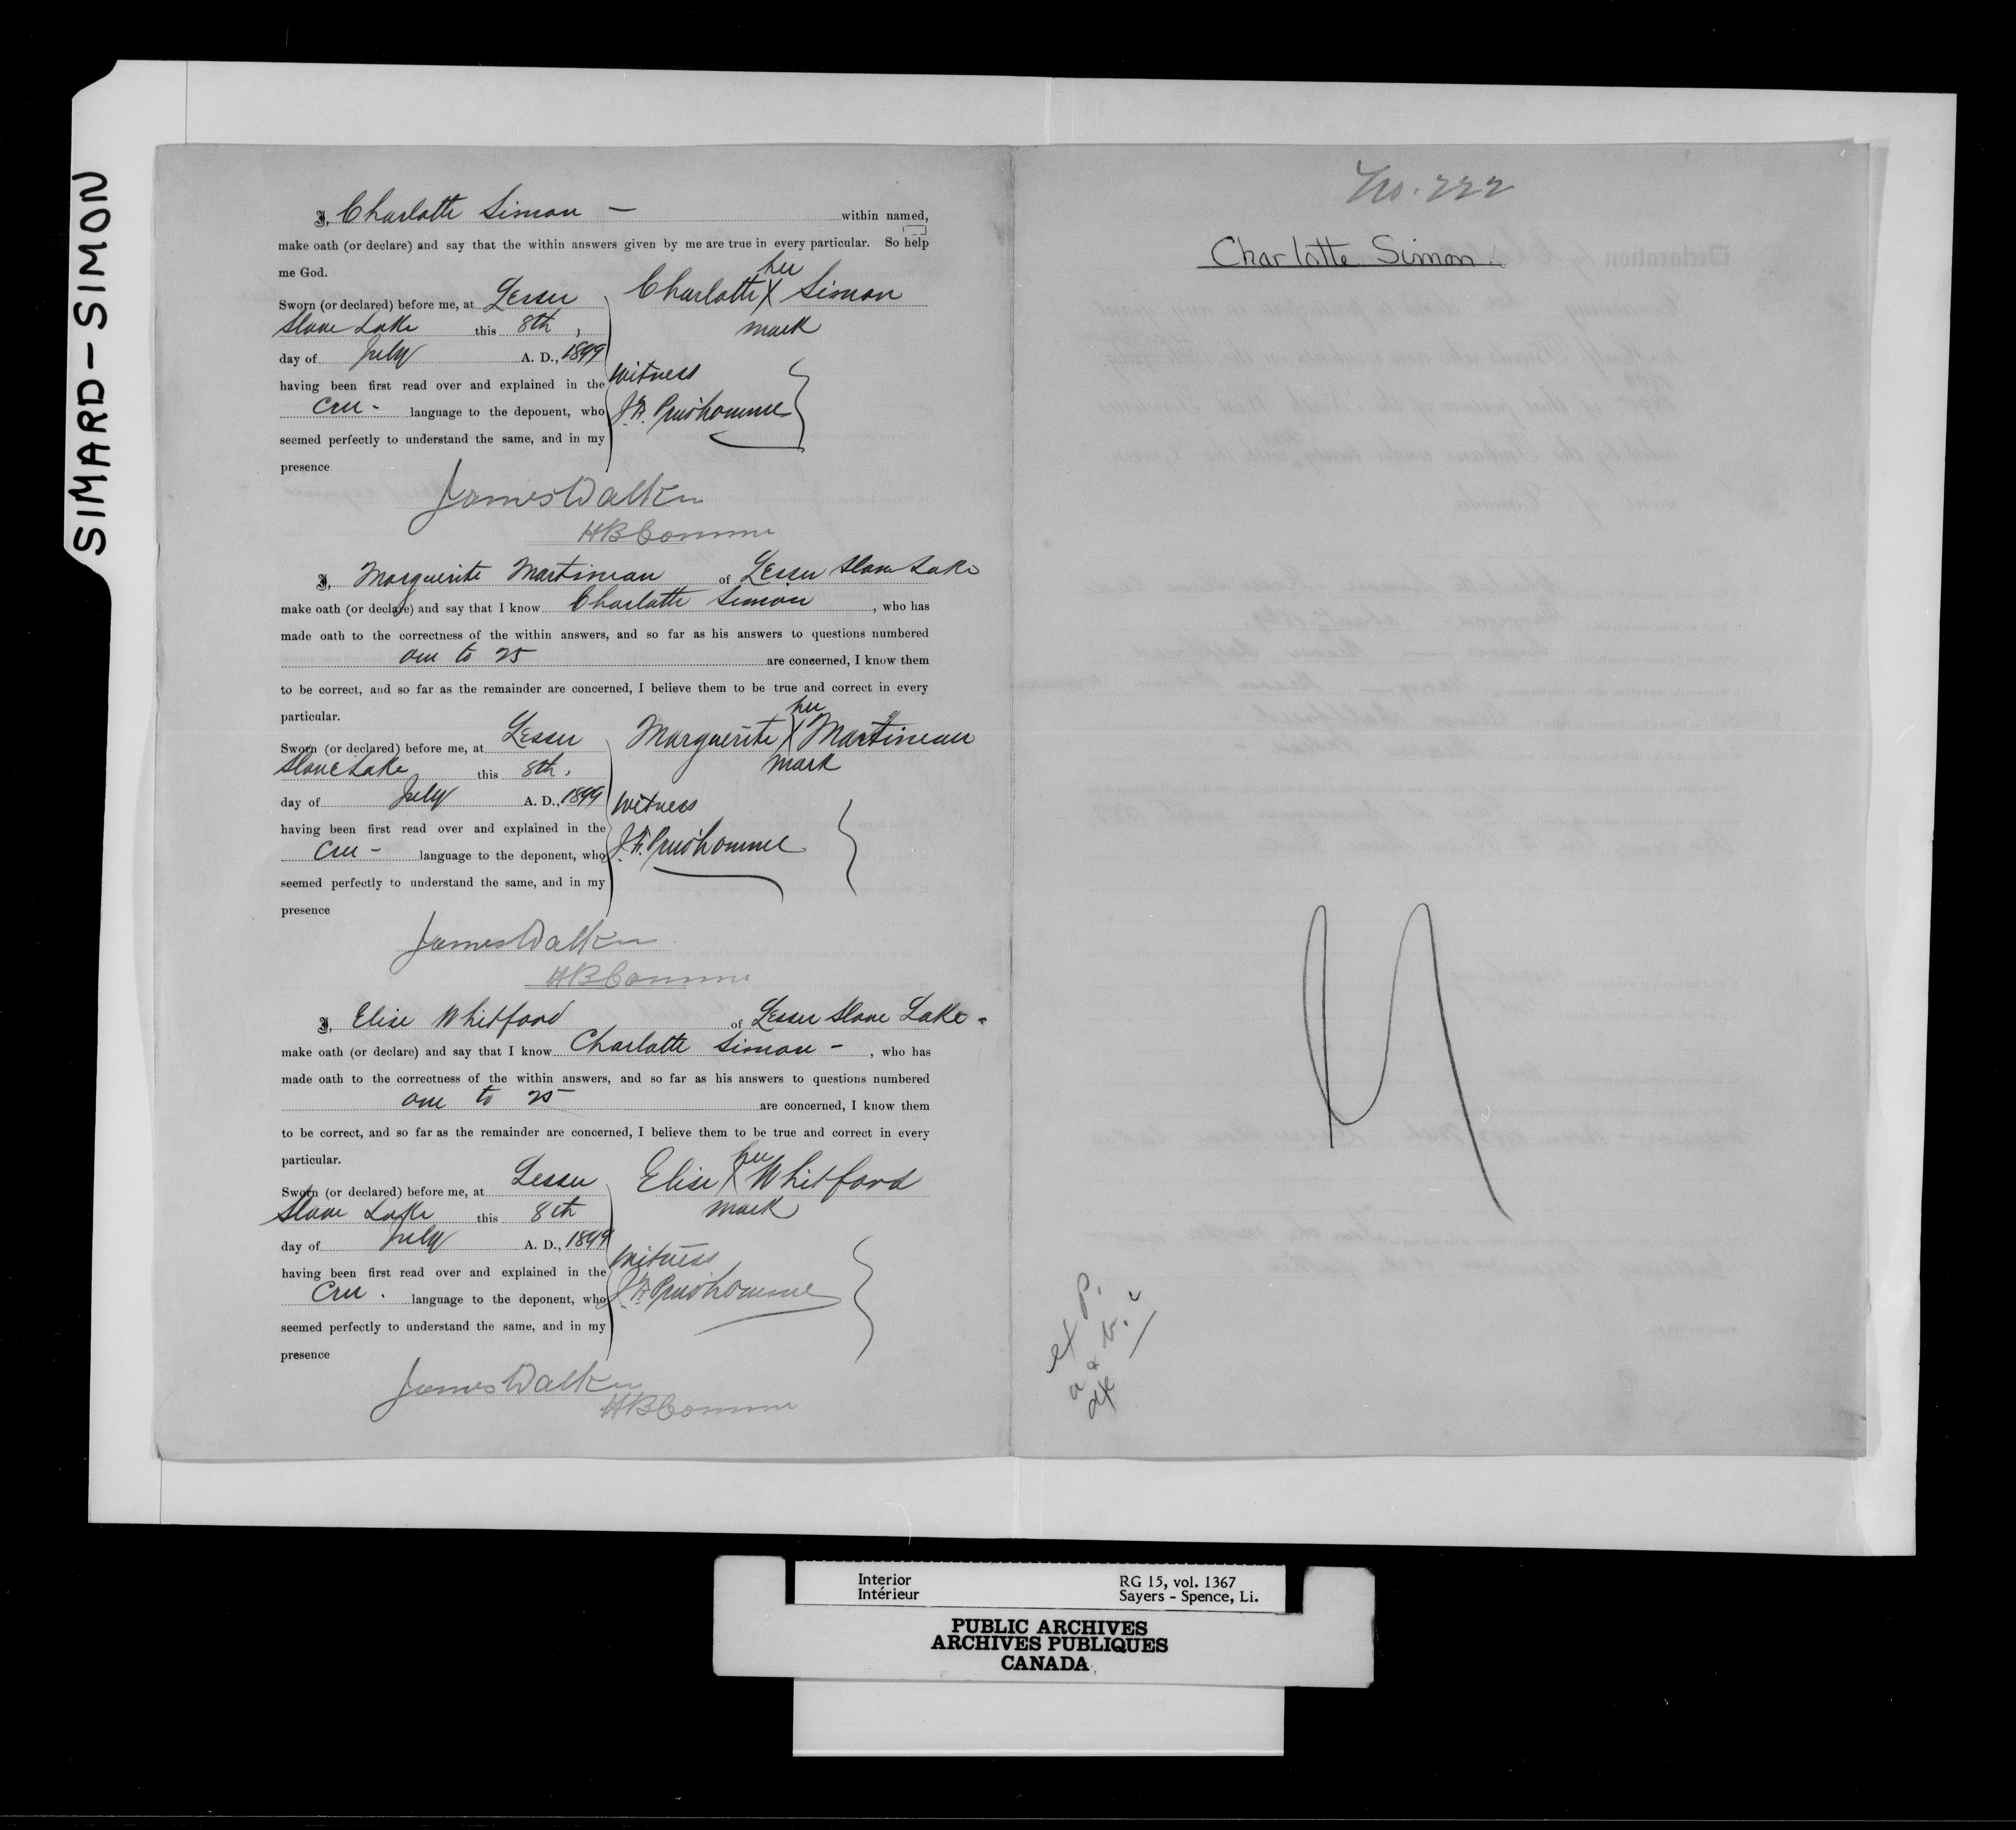 SIMARD-SIMON
I, Charlotte Simon — within named,
make oath (or declare) and say that the within answers given by me are true in every particular. So help
me God.
Sworn (or declared) before me, at Lesser
Slave Lake this 8th,
day of July A. D., 1899
having been first read over and explained in the
Cree - language to the deponent, who
seemed perfectly to understand the same, and in my
presence
Charlotte X Simon
her
mark
Witness
J. A. Prud'homme
James Walker
HB Commr
I, Marguerite Martineau of Lesser Slave Lake
make oath (or declare) and say that I know Charlotte Simon, who has
made oath to the correctness of the within answers, and so far as his answers to questions numbered
one to 25 are concerned, I know them
to be correct, and so far as the remainder are concerned, I believe them to be true and correct in every
particular.
Sworn (or declared) before me, at Lesser
Slave Lake this 8th,
day of July A. D., 1899
having been first read over and explained in the
Cree - language to the deponent, who
seemed perfectly to understand the same, and in my
presence
her
Marguerite X Martineau
mark
Witness
J. A. Prud'homme
James Walker
HB Commr
I, Elise Whitford of Lesser Slave Lake -
make oath (or declare) and say that I know Charlotte Simon -, who has
made oath to the correctness of the within answers, and so far as his answers to questions numbered
one to 25 are concerned, I know them
to be correct, and so far as the remainder are concerned, I believe them to be true and correct in every
particular.
Sworn (or declared) before me, at Lesser
Slave Lake this 8th
day of July A. D., 1899
having been first read over and explained in the
Cree. language to the deponent, who
seemed perfectly to understand the same, and in my
presence
her
Elise X Whitford
mark
Witness
J. A. Prud'homme
James Walker
HB Commr
No. 222
Charlotte Simon.
Interior
Intérieur
RG 15, vol. 1367
Sayers - Spence, Li.
PUBLIC ARCHIVES
ARCHIVES PUBLIQUES
CANADA